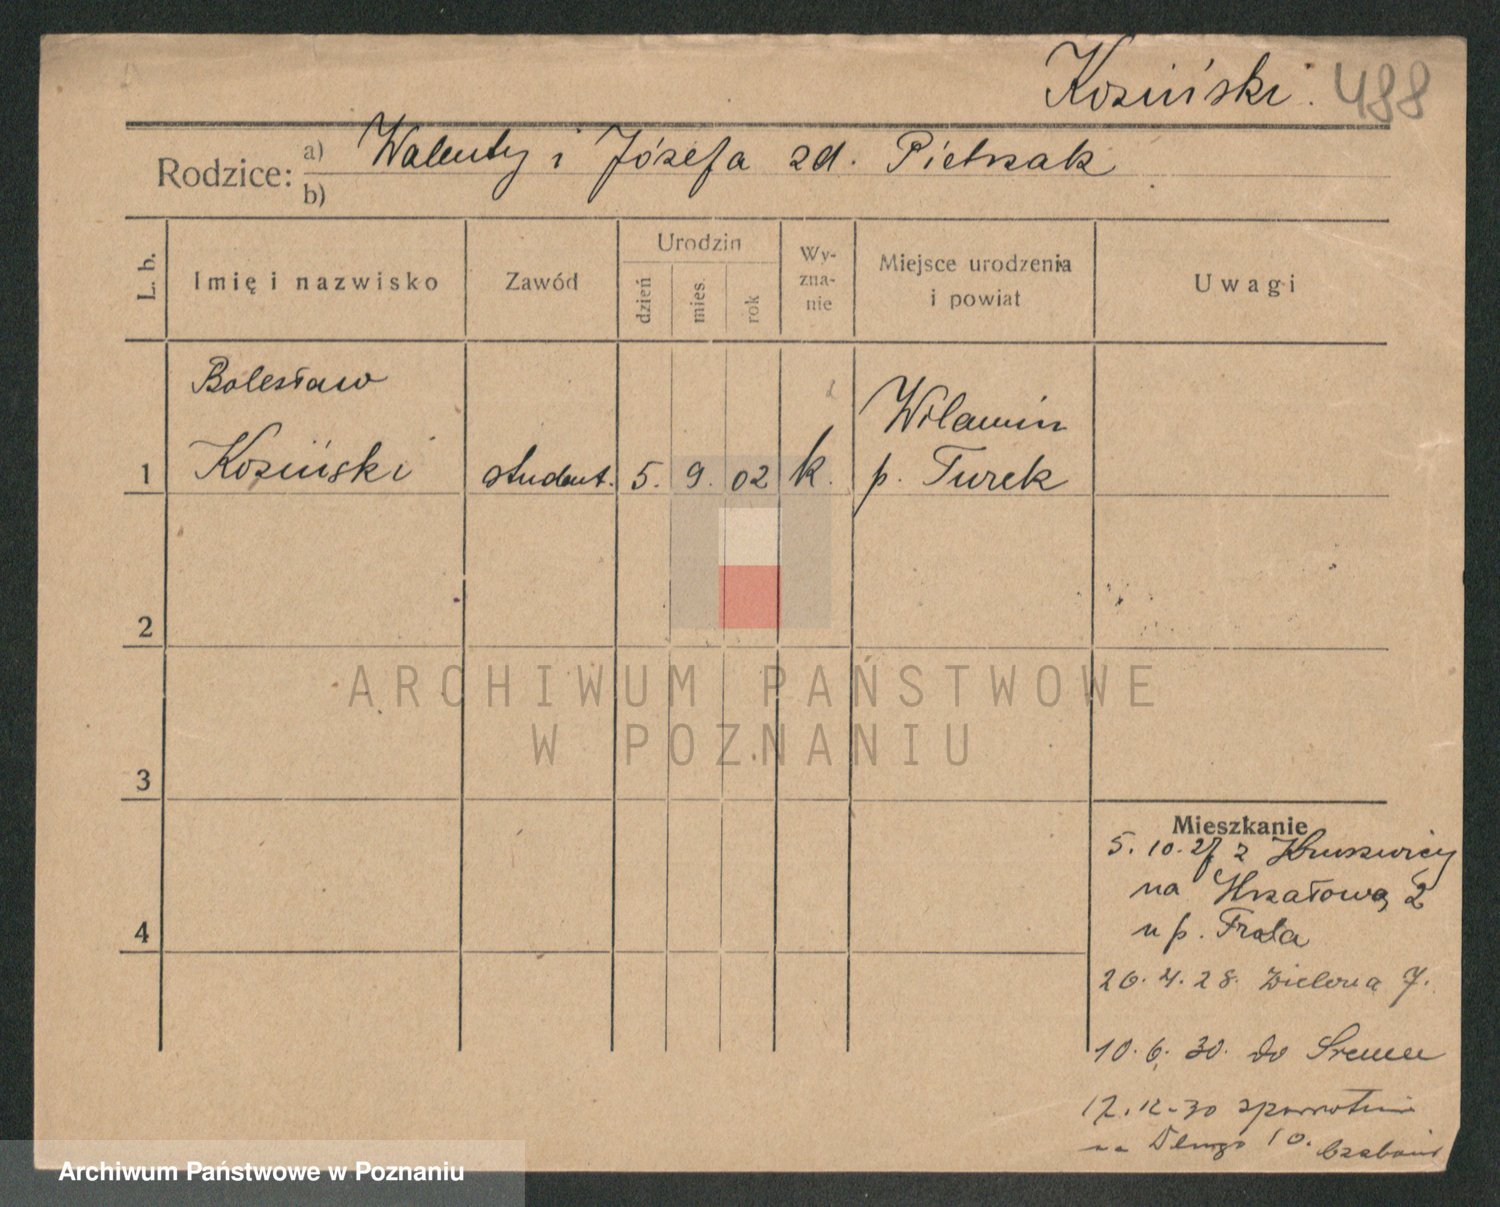 Kosiński. 488
Rodzice: a) Walenty i Józefa zd. Pietrzak
b)
L. b. Imię i nazwisko Zawód Urodzin dzień mies. rok Wyznanie Miejsce urodzenia i powiat Uwagi
Bolesław Wilamin
1 Kosiński student. 5. 9. 02 k. p. Turek
2
ARCHIWUM PAŃSTWOWE
W POZNANIU
3
Mieszkanie
5. 10. 27 z Kruszwicy
na Strzałową 2
u p. Frala
4
20. 4. 28. Zielona 7.
10. 6. 30. do Śremu
17. 12. 30 zpowrotem
na Długo 10.
Archiwum Państwowe w Poznaniu